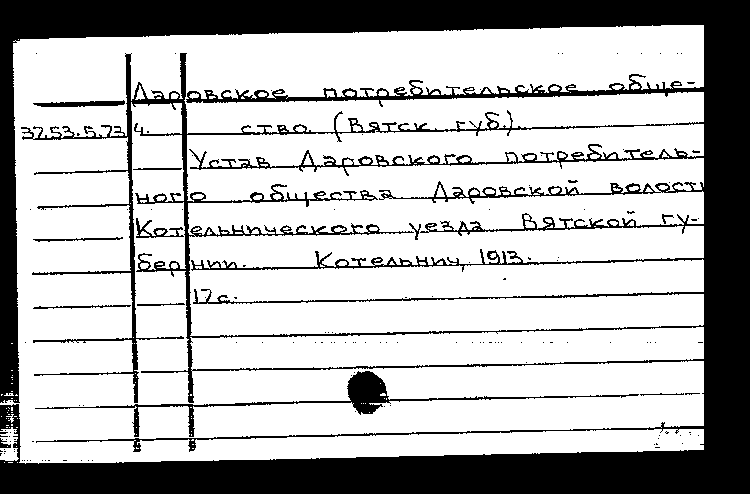 Даровское потребительское обще-
37.53.5.73 4. ство (Вятск. губ.).
Устав Даровского потребитель-
ного общества Даровской волости
Котельнического уезда Вятской гу-
бернии. Котельнич, 1913.
17 с.